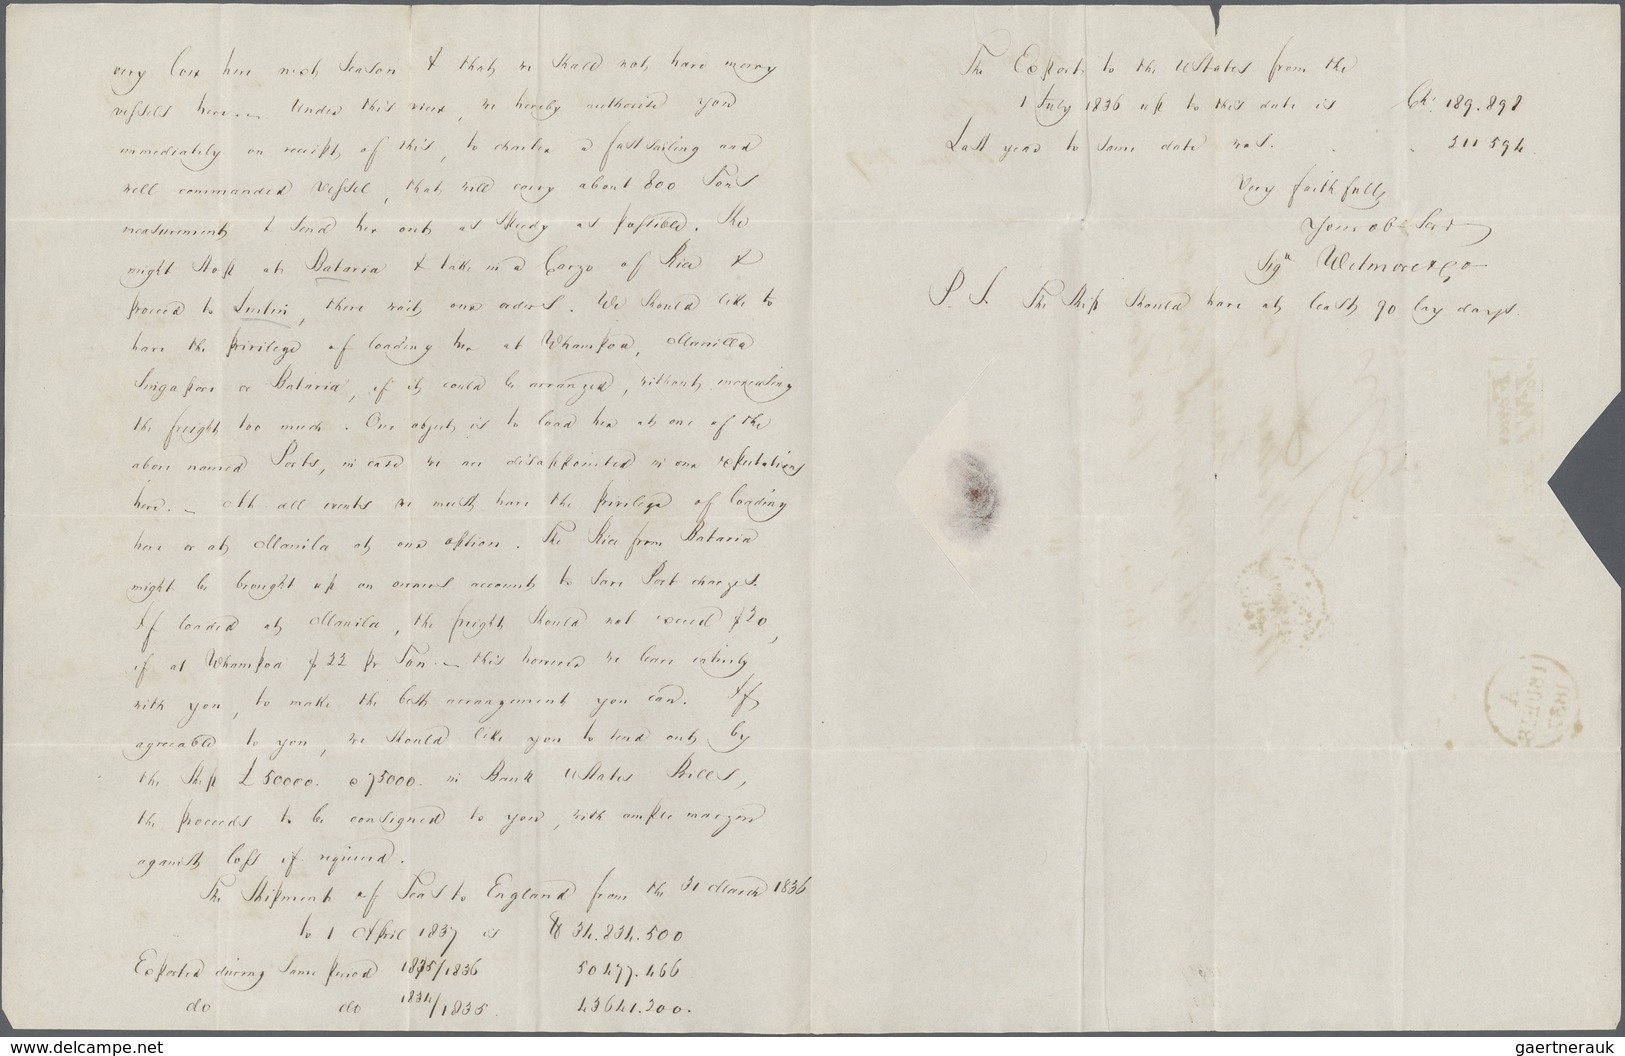 very low here next season & that we shall not have many
vessels here. — Under this view, we hereby authorise you
immediately on receipt of this, to charter a fast sailing and
well commanded vessel, that will carry about 800 Tons
measurement & send her out as speedy as possible. She
might stop at Batavia & take in a Cargo of Rice &
proceed to Lintin, there wait our orders. We should like to
have the privilege of loading her at Whampoa, Manilla
Singapore or Batavia, if it could be arranged, without increasing
the freight too much. Our object is to load her at one of the
above named Ports, in case we are disappointed in our expectations
here. — At all events we must have the privilege of loading
here or at Manila at our option. The Rice from Batavia
might be brought up on owners account to save Port charges.
If loaded at Manila, the freight should not exceed $20,
if at Whampoa $22 pr Ton — this however we leave entirely
with you, to make the best arrangement you can. If
agreeable to you, we should like you to send out by
the ship £50000. o 75000. in Bank UStates Bills,
the proceeds to be consigned to you, with ample margin
against loss if required.
The Shipment of Teas to England from the 31 March 1836
to 1 April 1837 is lb 34.834.500
Exported during same period 1835/1836 50477.466
do do 1834/1835. 43641.200.
The Exports to the UStates from the
1 July 1836 up to this date is Ch: 189.898
Last year to same date was. 211594
Very faithfully
Your ob Serv
Sigd Wetmore & Co
P.S. The Ship should have at least 90 lay days.
www.delcampe.net
gaertnerauk